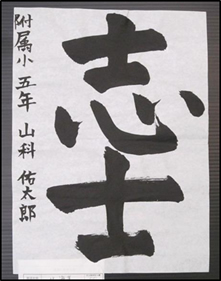 志士
附属小 五年 山科 佑太郎